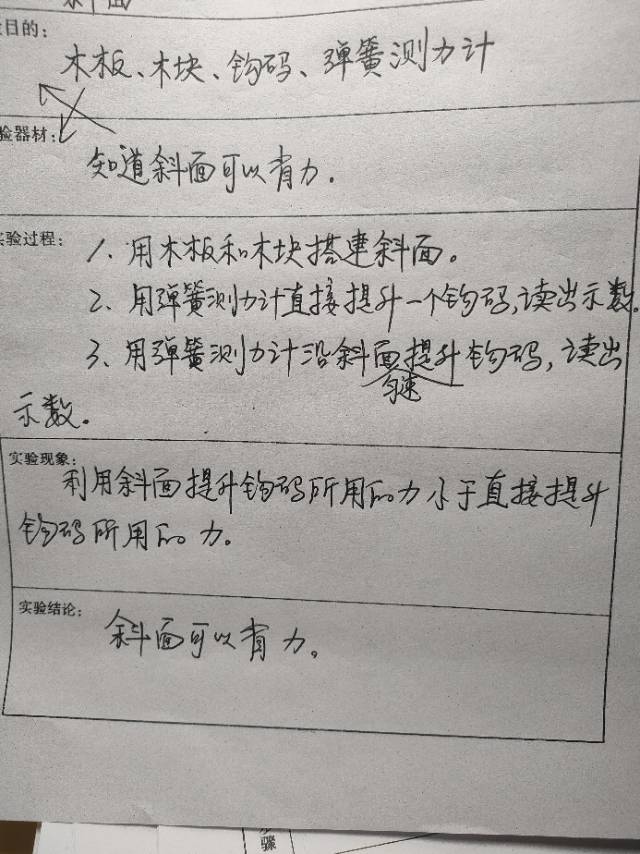 斜面
目的：
木板、木块、钩码、弹簧测力计
验器材：
知道斜面可以省力.
实验过程：
1、用木板和木块搭建斜面。
2、用弹簧测力计直接提升一个钩码,读出示数.
3、用弹簧测力计沿斜面提升钩码，读出
匀速
示数.
实验现象：
利用斜面提升钩码所用的力小于直接提升
钩码所用的力。
实验结论：
斜面可以省力。
骤